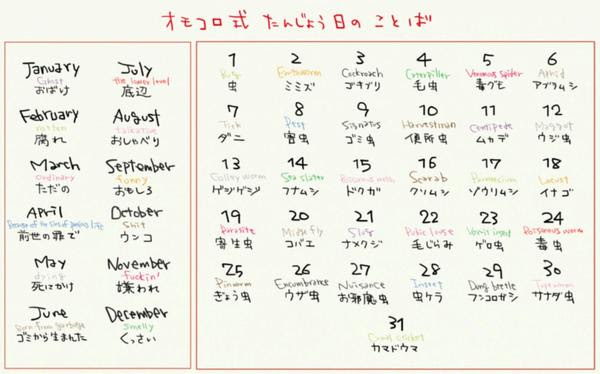 オモコロ式 たんじょう日の ことば
January
Ghost
おばけ
July
the lower level
底辺
February
rotten
腐れ
August
talkative
おしゃべり
March
ordinary
ただの
September
funny
おもしろ
April
Because of the sins of previous life
前世の罪で
October
Shit
ウンコ
May
dying
死にかけ
November
fuckin'
嫌われ
June
Born from garbage
ゴミから生まれた
December
Smelly
くっさい
1
Bug
虫
2
Earthworm
ミミズ
3
Cockroach
ゴキブリ
4
Caterpillar
毛虫
5
Venomous spider
毒グモ
6
Aphid
アブラムシ
7
Tick
ダニ
8
Pest
害虫
9
ゴミ虫
10
Harvestman
便所虫
11
Centipede
ムカデ
12
Maggot
ウジ虫
13
ゲジゲジ
14
Sea slater
フナムシ
15
Poisonous moth
ドクガ
16
Scarab
クソムシ
17
Paramecium
ゾウリムシ
18
Locust
イナゴ
19
Parasite
寄生虫
20
コバエ
21
Slug
ナメクジ
22
Pubic louse
毛じらみ
23
Vomit insect
ゲロ虫
24
Poisonous worm
毒虫
25
Pinworm
ぎょう虫
26
Encumbrance
ウザ虫
27
Nuisance
お邪魔虫
28
Insect
虫ケラ
29
Dung beetle
フンコロガシ
30
Tapeworm
サナダ虫
31
Camel cricket
カマドウマ